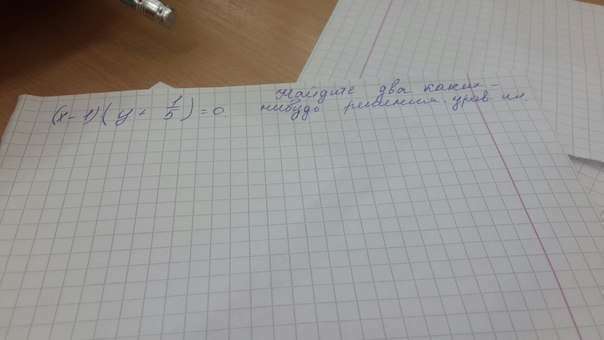 (x-1)(y+ 1/5)=0
Найдите два каких-
нибудь решения уравн ия